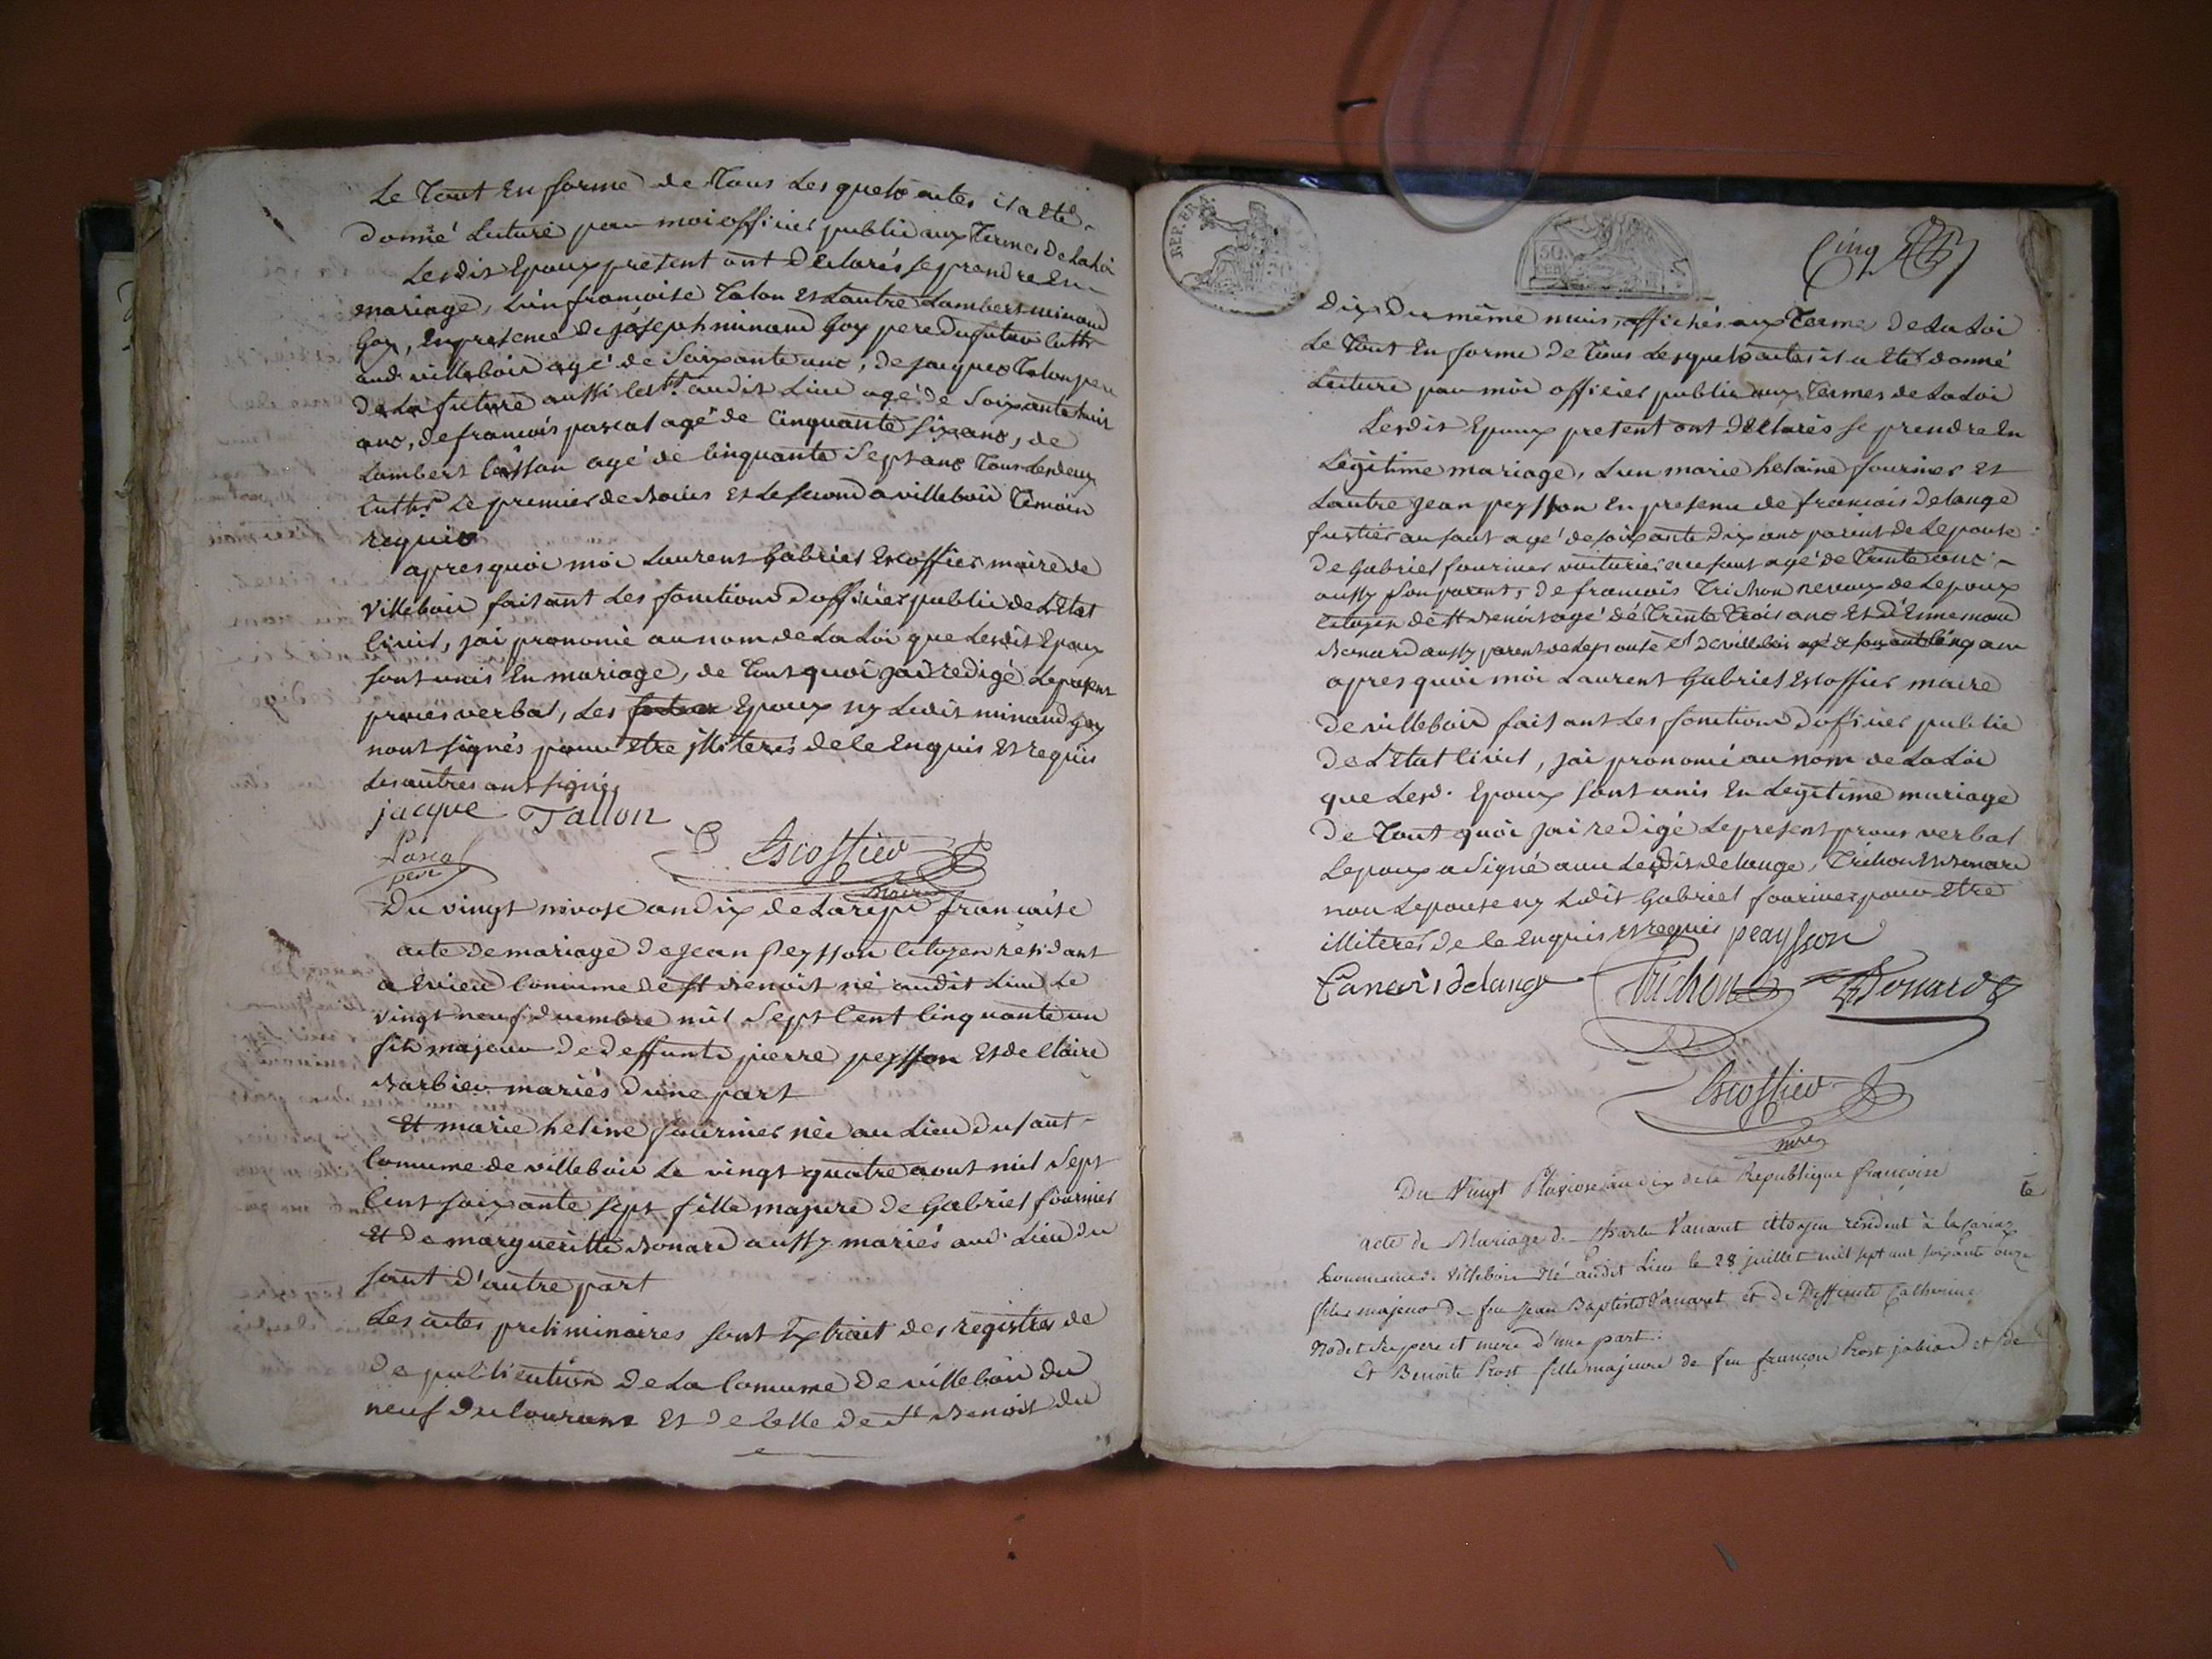 Le Tout En forme de Tous Les quels actes il a Eté
donné Lecture par moi officier public aux Termes de La Loi
Lesdis Epoux présent ont Declarés se prendre En
mariage, L'un francoise Talon Et Lautre Lambert minand
Goy, En presence de joseph minand Goy pere du futur Cultr
aud villebois agé de Soixante ans, de jacques Talon pere
de La future aussi Cultr. audit Lieu agé de Soixante huit
ans, de francois pascal agé de Cinquante Six ans, de
Lambert agé de Cinquante Sept ans Tous Les deux
Cultrs Le premier de Et Le second a villebois Témoin
requis
apres quoi moi Laurent Gabriel Escoffier maire de
Villebois faisant Les fonctions d'officier public de L'Etat
Civil, jai prononcé au nom de La Loi que Lesdis Epoux
sont unis En mariage, de Tout quoi jai redigé Le present
proces verbal, Les Epoux ny Ledit minand goy
n'ont signés pour Etre illiterés de ce Enquis Et requis
Les autres ont signé
jacque Tallon
Pascal
pere
Escoffier
Maire
Du vingt nivose an dix de La repe francaise
acte de mariage de Jean Peysson Citoyen résidant
a Evieu Comume de St Benoit né audit Lieu Le
vingt neuf decembre mil Sept Cent Cinquante un
fils majeur de deffunts pierre peysson Et de Claire
Barbier mariés d'une part
Et marie heline fournier née au Lieu du saut
Comume de villebois Le vingt quatre aout mil Sept
Cent soixante Sept fille majure de Gabriel fournier
Et de margueritte Bonard aussy mariés aud. Lieu du
saut d'autre part
Les actes preliminaires sont Extrait des registres de
de publication de La Comume de villebois du
neuf du Courant Et de Celle de St Benoit du
REP. FRA.
50
50
CEN
Cinq
Dix Du même mois, affichés aux Terme de La Loi
Le Tout En forme De Tous Lesquels actes il a Eté donné
Lecture par moi officier public aux Termes de La Loi
Lesdis Epoux present ont Declarés se prendre En
Légitime mariage, L'un marie helaine fournier Et
Lautre Jean peysson En presence de francois delange
fustier au saut agé de soixante dix ans parent de Lepouse
de Gabriel fournier voiturier au saut agé de Trente ans
aussy son parent, de francois Trichon neveux de Lepoux
Citoyen de St Benoit agé de Trente Trois ans Et d'Ennemond
Bonard aussy parent de Lepouse Et de villebois agé de soixante Cinq ans
apres quoi moi Laurent Gabriel Escoffier maire
de villebois faisant Les fonctions d'officier public
de L'Etat Civil, jai prononcé au nom de La Loi
que Lesd. Epoux sont unis En Legitime mariage
De Tout quoi jai redigé Le present proces verbal
Lepoux a signé avec Lesdis delange, Trichon Et Bonard
non Lepouse ny Ledit Gabriel fournier pour Etre
illiteres de ce Enquis Et requis peaysson
francois delange Trichon Bonard
Escoffier
mre
Du Vingt Pluviose an dix de la Republique francoise
acte de Mariage de Charle Vanaret Citoyen resident à
Commune de Villebois Né audit Lieu le 28 juillet mil sept cent soixante onze
fils majeur de feu Jean Baptiste Vanaret et de Deffunte Catherine
Nodet Ses pere et mere d'une part:
Et Benoite Prost fille majeure de feu françois Prost jabiard et de